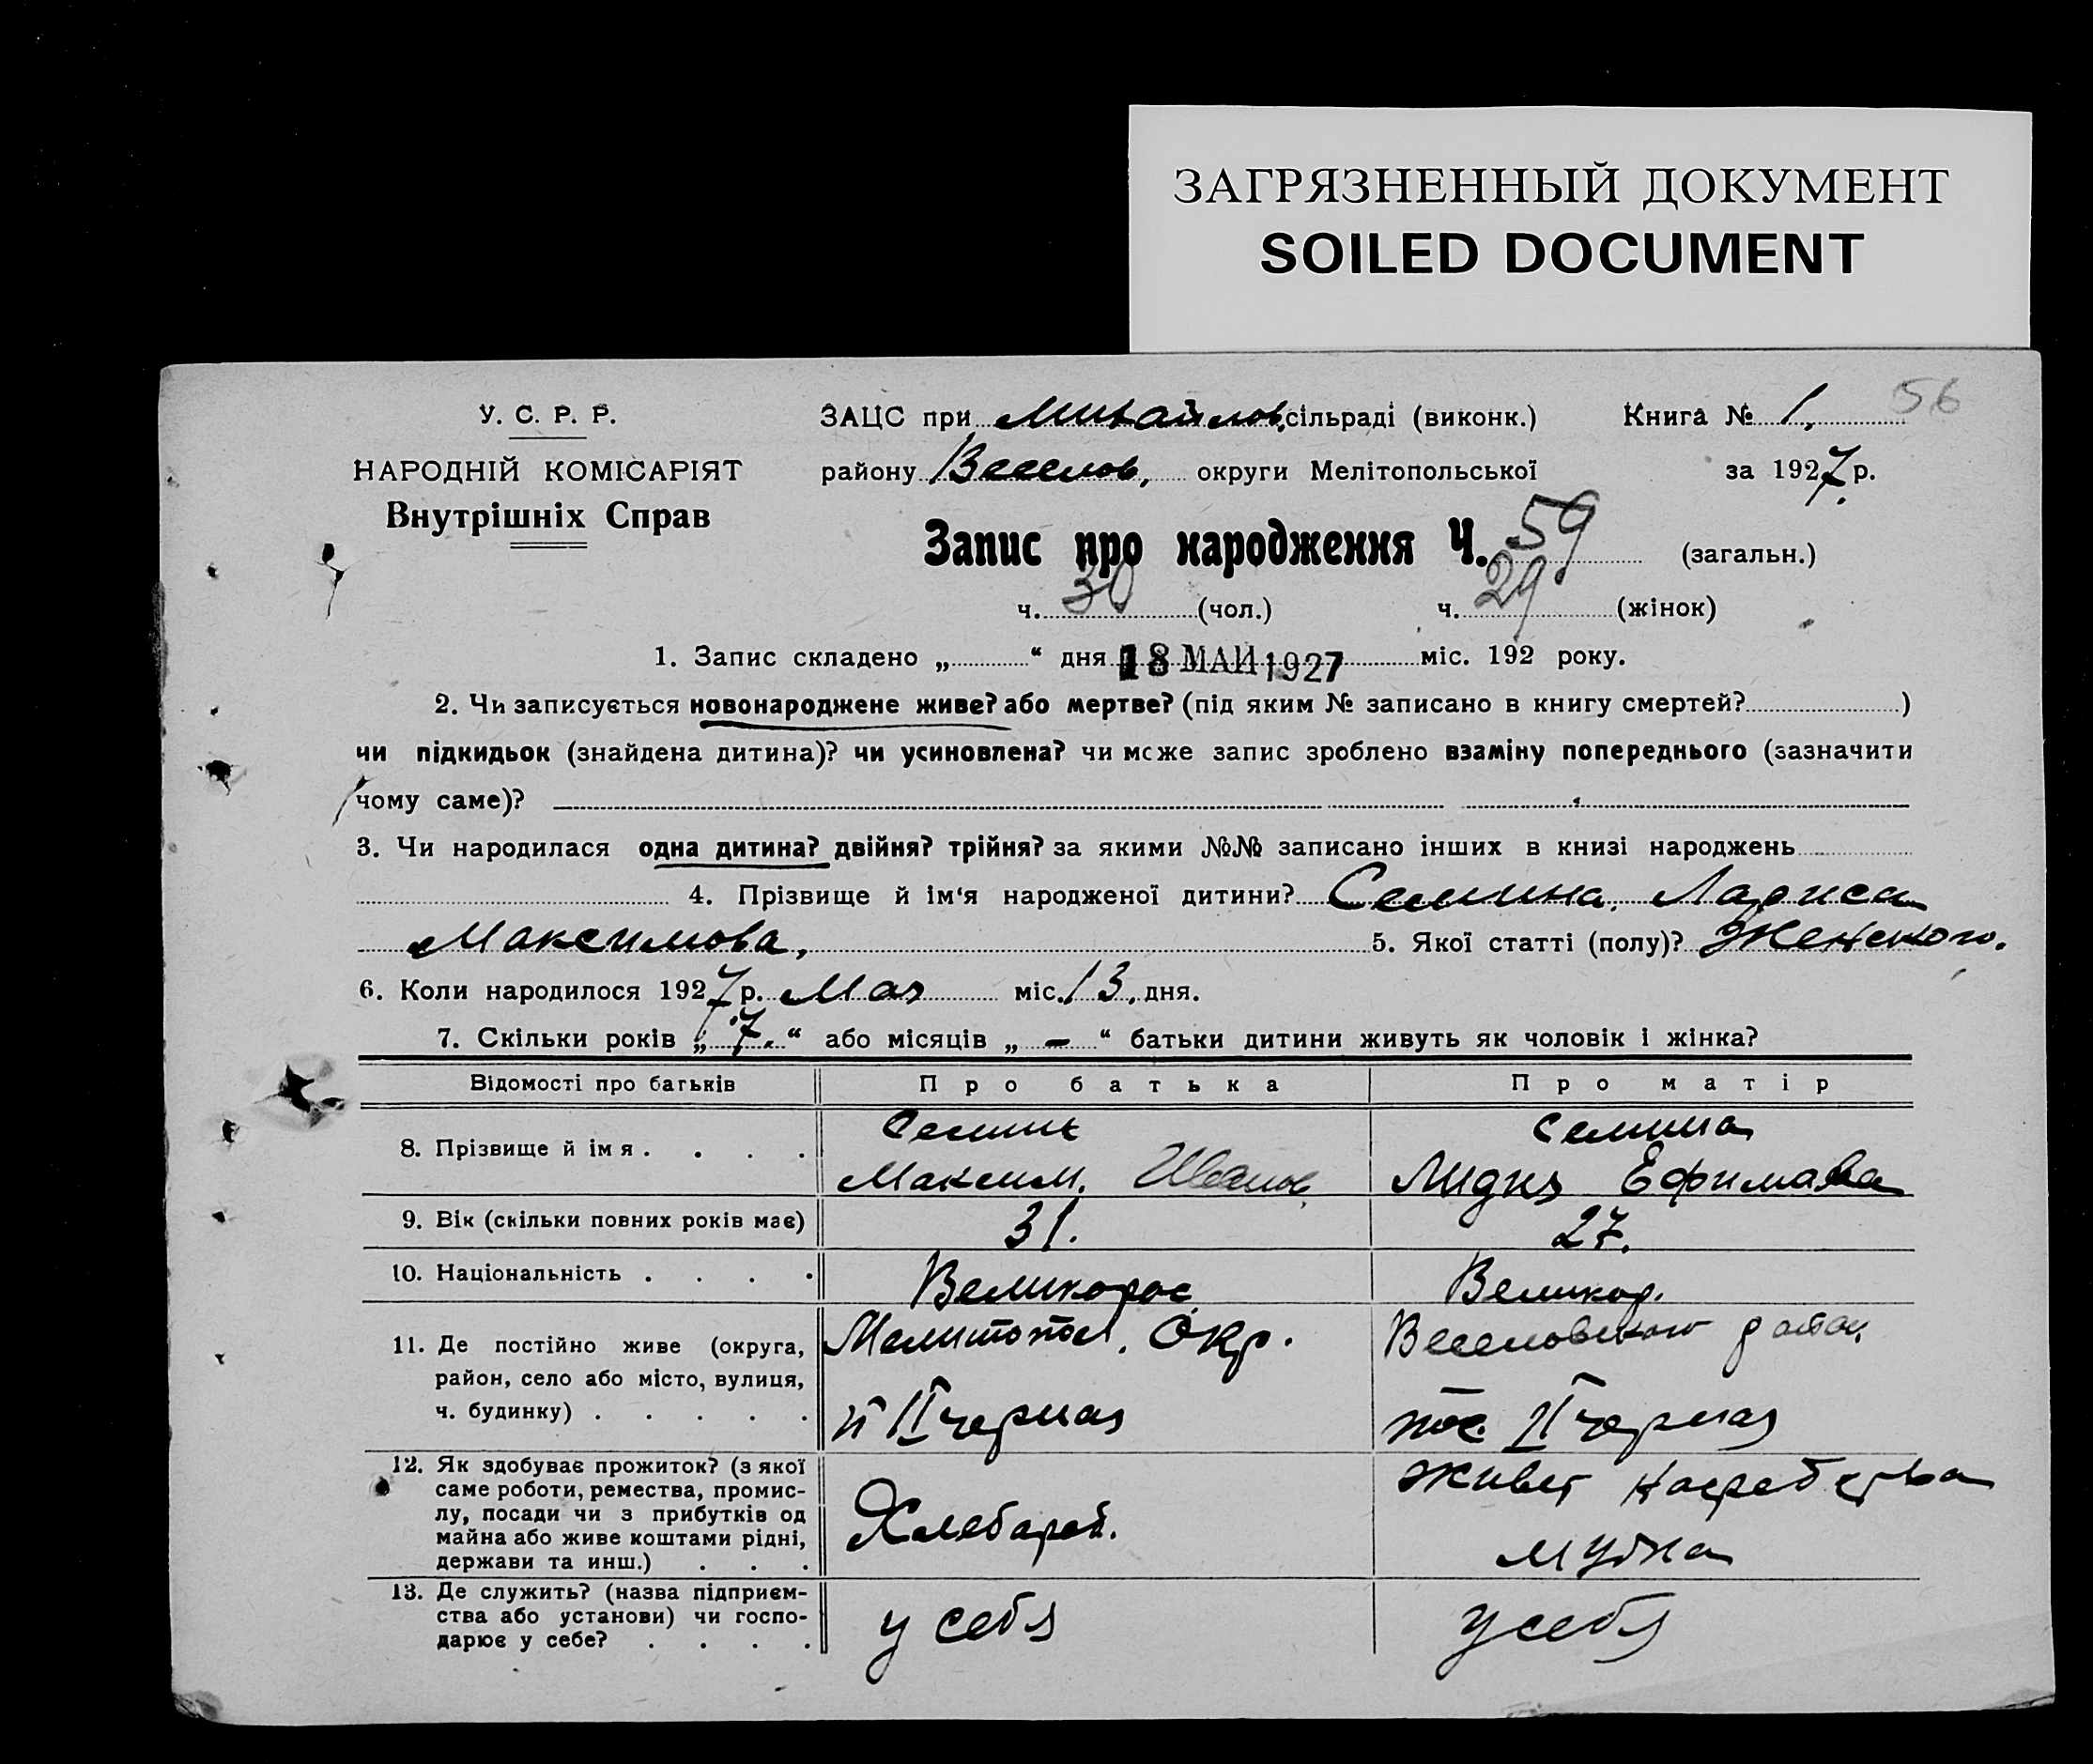 ЗАГРЯЗНЕННЫЙ ДОКУМЕНТ
SOILED DOCUMENT
56
У. С. Р. Р. ЗАЦС при Михайлов. сільраді (виконк.) Книга № 1,
НАРОДНІЙ КОМІСАРІЯТ району Веселов, округи Мелітопольської за 1927 р.
Внутрішніх Справ
Запис про народження Ч. 59 (загальн.)
ч. 30 (чол.) ч. 29 (жінок)
1. Запис складено „ “ дня 18 МАЙ 1927 міс. 192 року.
2. Чи записується новонароджене живе? або мертве? (під яким № записано в книгу смертей? )
чи підкидьок (знайдена дитина)? чи усиновлена? чи може запис зроблено взаміну попереднього (зазначити
чому саме)?
3. Чи народилася одна дитина? двійня? трійня? за якими №№ записано інших в книзі народжень
4. Прізвище й ім‘я народженої дитини? Семина. Лариса
Максимова, 5. Якої статті (полу)? Женского.
6. Коли народилося 1927 р. Мая міс. 13. дня.
7. Скільки років „ 7. “ або місяців „ – “ батьки дитини живуть як чоловік і жінка?
Відомості про батьків Про батька Про матір
8. Прізвище й ім я . . . . Семин Семина
Максим. Иванов. Лидия Ефимава
9. Вік (скільки повних років має) 31. 27.
10. Національність . . . . Великорос Великор.
11. Де постійно живе (округа, Мелитопол. Окр. Веселовского район
район, село або місто, вулиця,
ч. будинку) . . . . . п II черная пос. II черная
12. Як здобуває прожиток? (з якої Живет на средства
саме роботи, ремества, промис-
лу, посади чи з прибутків од Хлебароб.
майна або живе коштами рідні, мужа
держави та инш.) . . .
13. Де служить? (назва підприєм-
ства або установи) чи госпо- у себя у себя
дарює у себе? . . . .